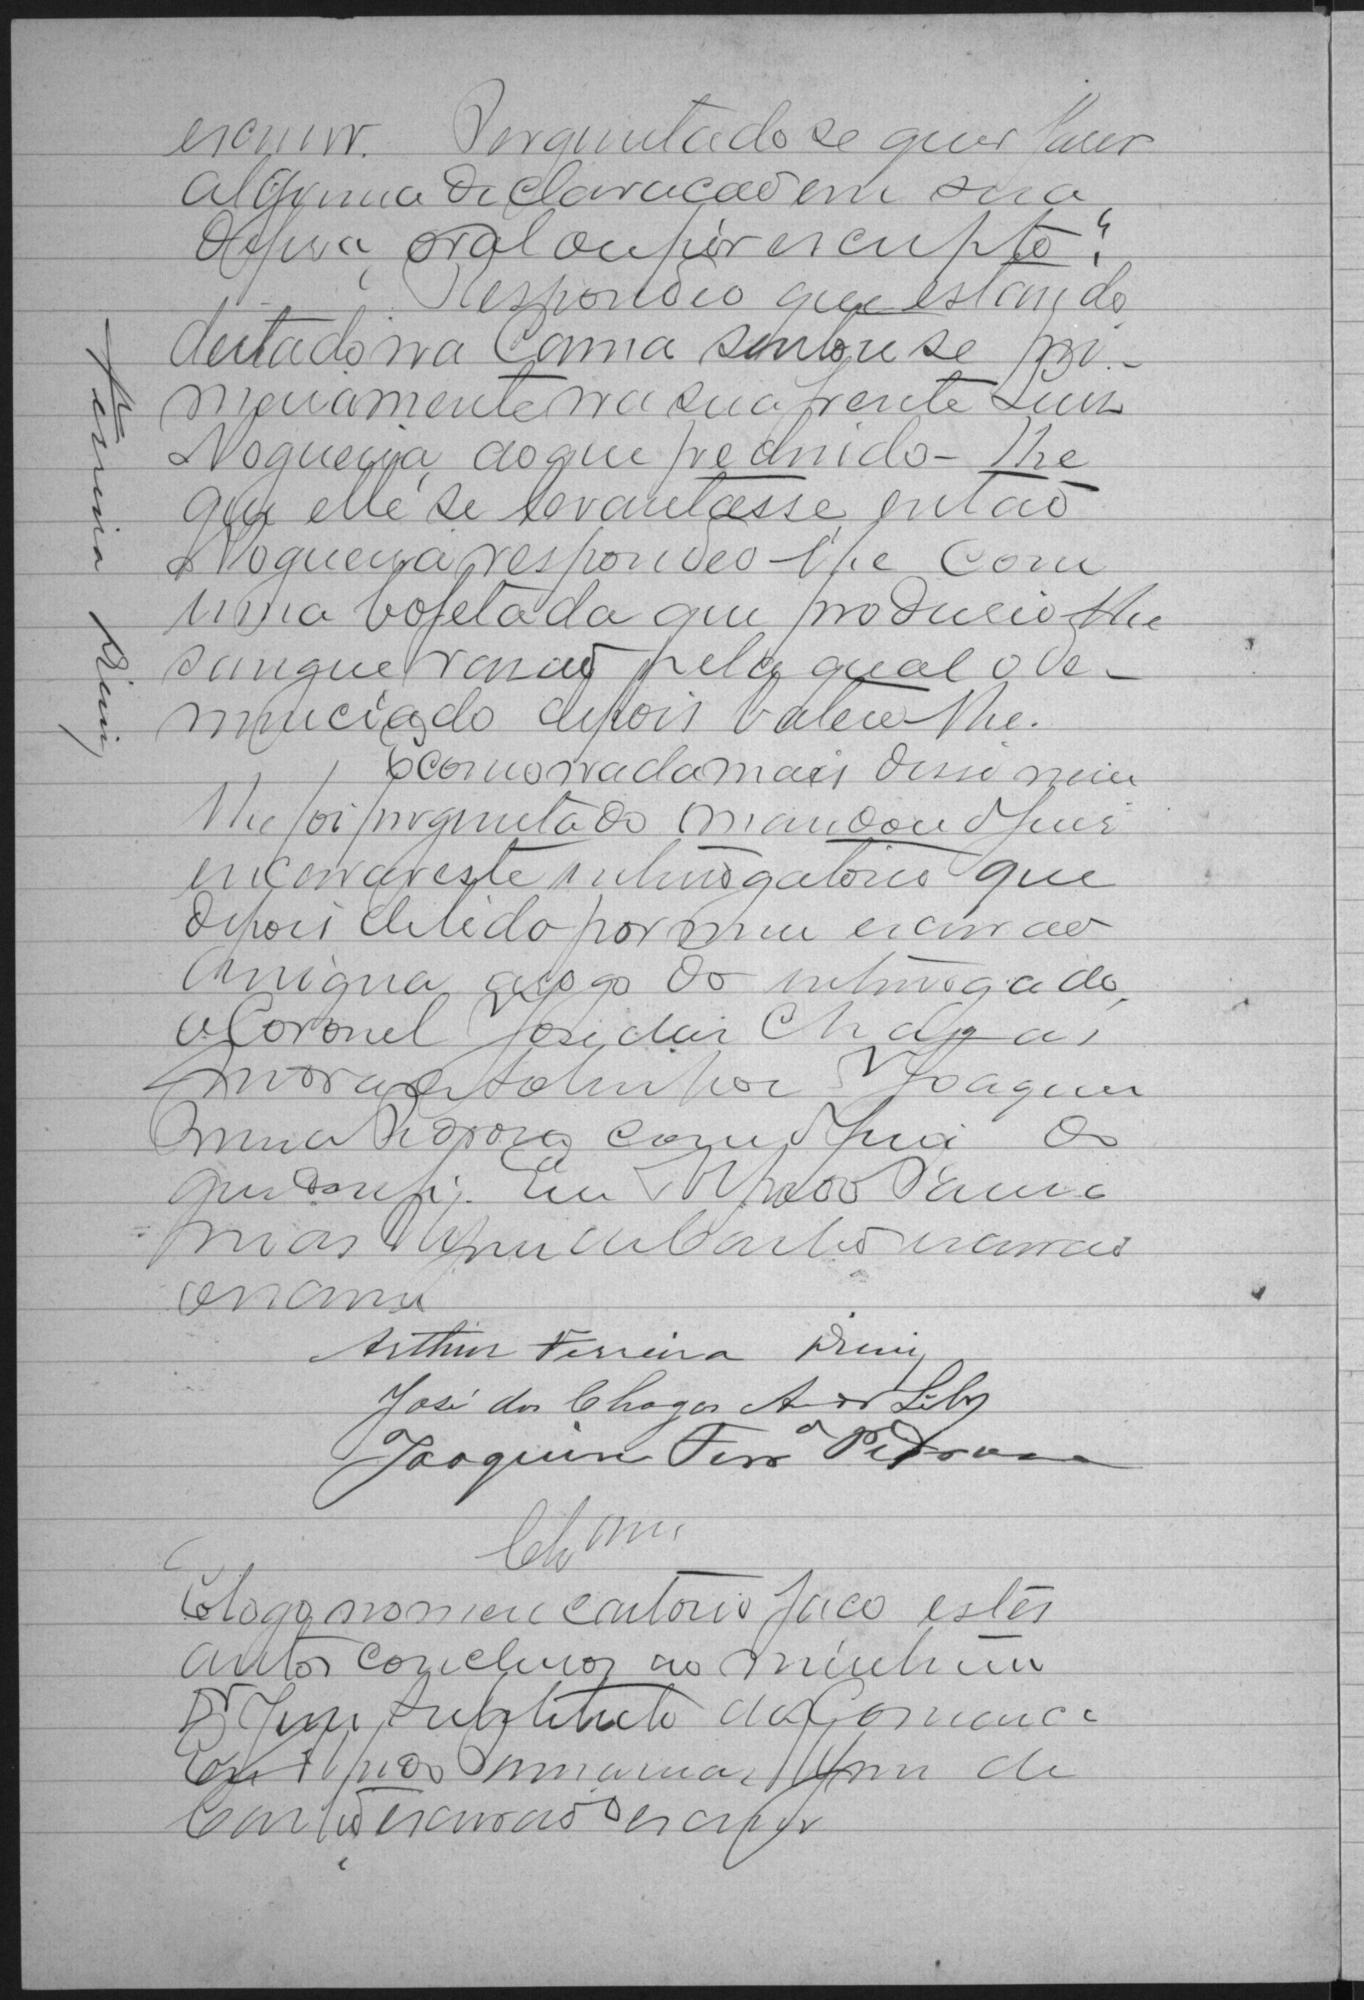 escrever. Perguntado se quer fazer
alguma declaracaõ em sua
defesa, oral ou por escripto?
Respondeo que estando
deitado na Cama sentou se pri-
meiramente na sua frente Luiz
Nogueira, ao que pedindo-lhe
que elle se levantasse, entaõ
Nogueira respondeo-lhe com
uma bofetada que produsio-lhe
sangue rasaõ pela qual o de-
nunciado depois bateu-lhe.
E como nada mais disse nem
lhe foi perguntado mandou o Juiz
encerrar este interrogatorio que
depois de lido por mim escrivaõ
assigna, a rogo do interrogado,
o Coronel José das Chagas
Joaquim
com o Juiz do
que dou fé. Eu
de Castro escrivaõ
escrevi
Arthur Ferreira Diniz
José das Chagas
Joaquim Ferrª Pedrosa
Clsm
E logo no meu cartorio faco estes
autos conclusos ao
Dr Juiz Substituto da Comarca
Eu de
Castro escrivaõ o escrevi
Ferreira Diniz